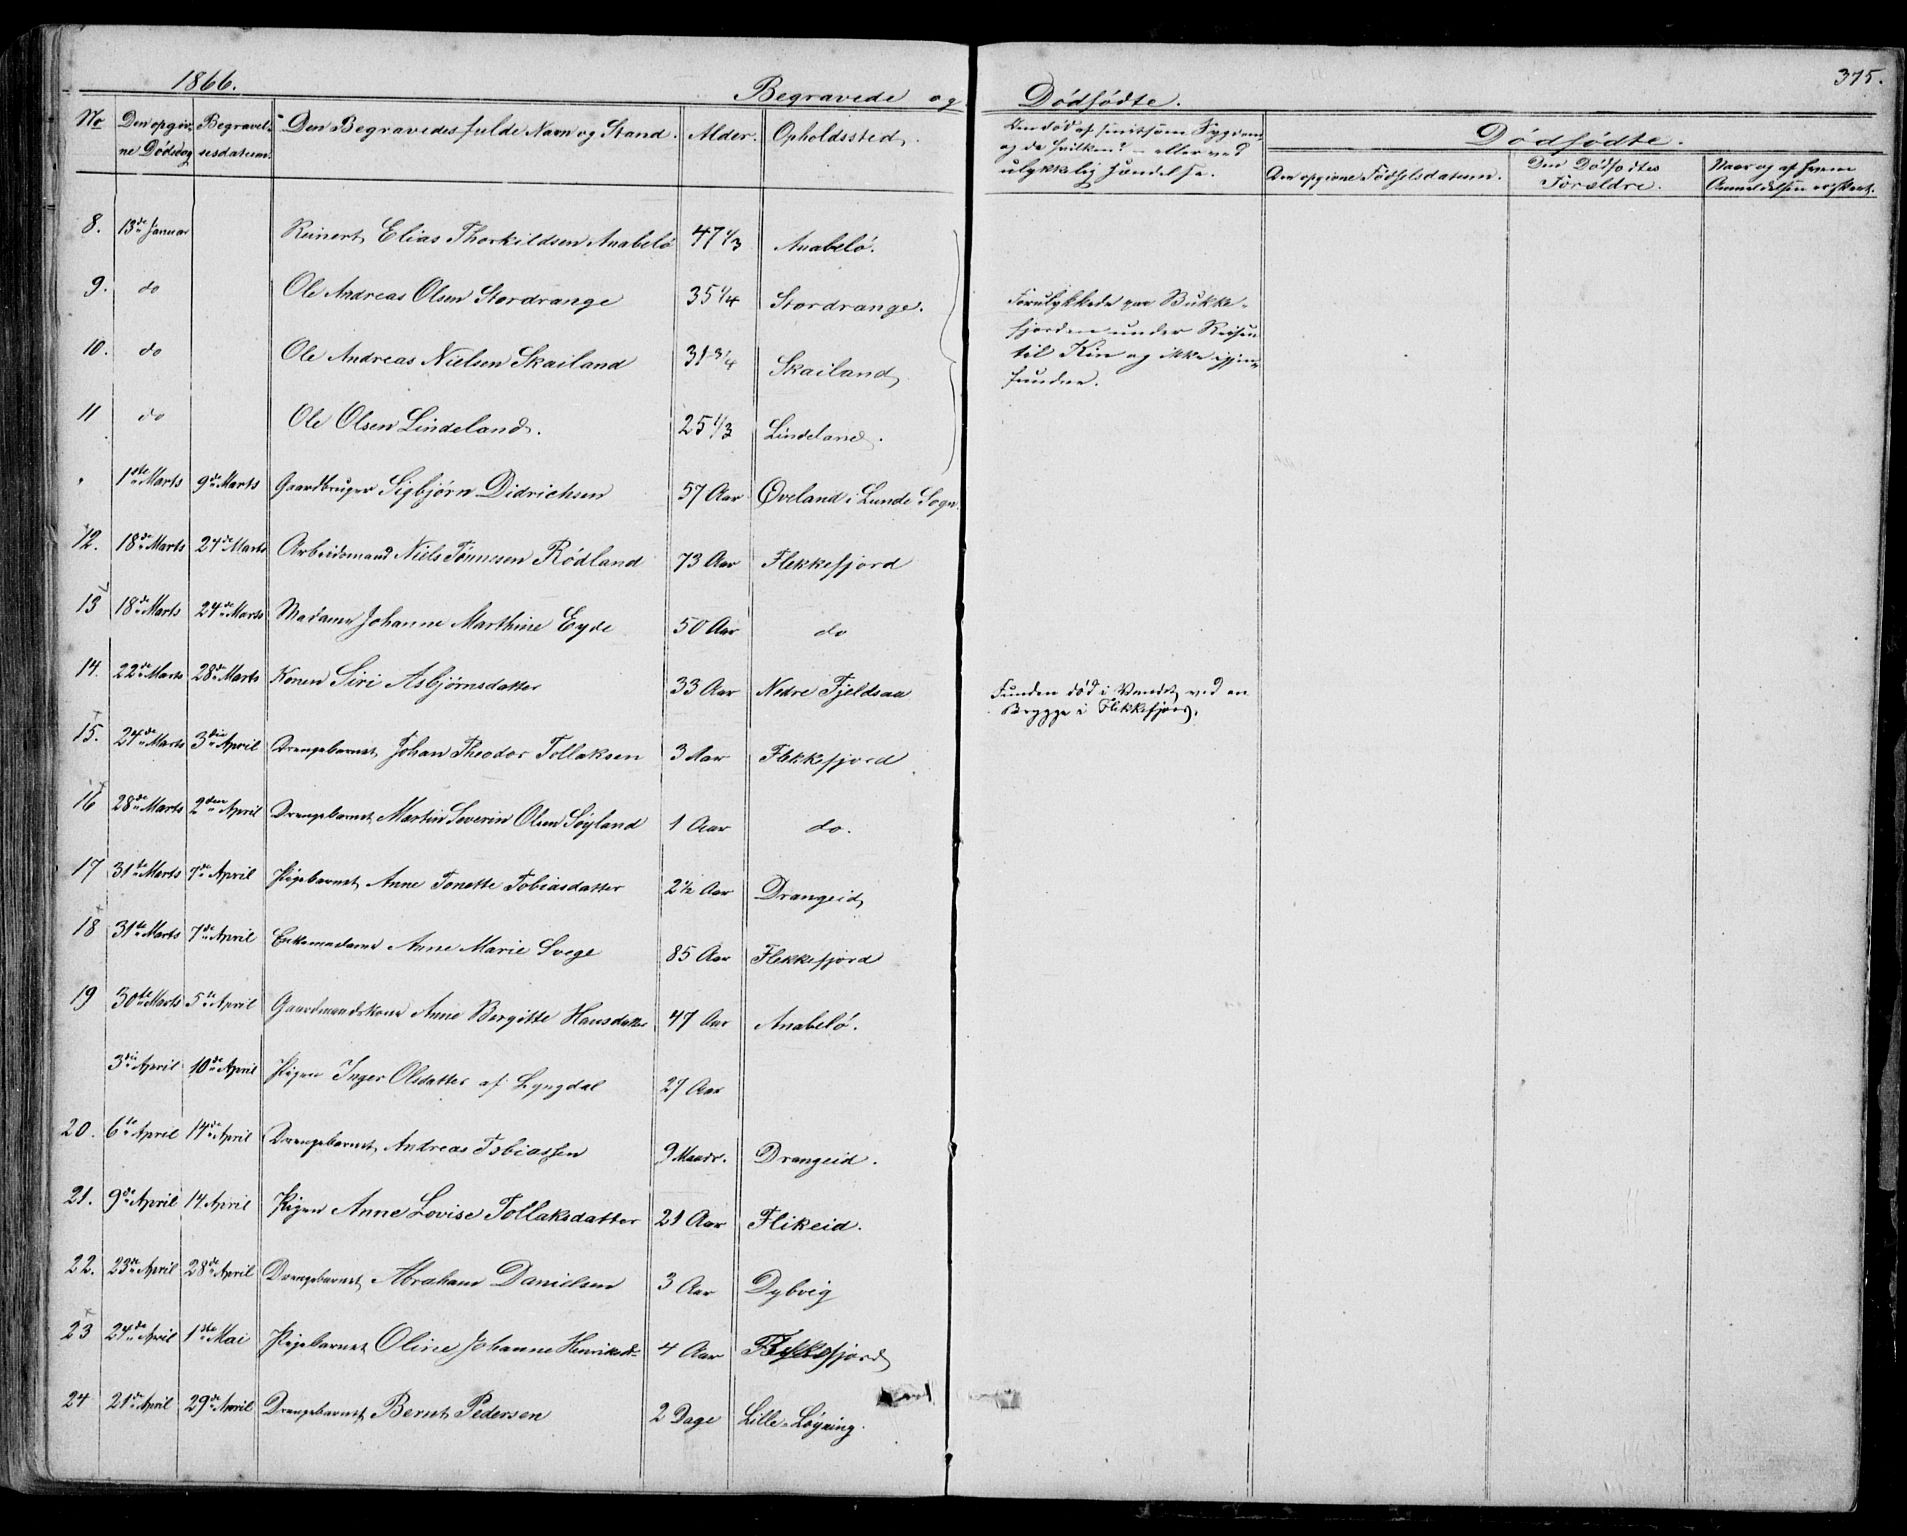 1866. Begravede og Dødfødte. 375.
No Den opgiv- Begravel- Den Begravedes fulde Navn og Stand. Alder. Opholdssted. Om død af smitsom Sygdom Dødfødte.
ne Dødsdag sesdatum. og da hvilken? - eller ved Den Dødfødtes Naar og af hvem
ulykkelig Hændelse. Den opgivne Fødselsdatum. Forældre. Anmeldelsen er skeet.
8. 13de Januar Reinert Elias Thorkildsen Anabelö 47 1/3 Anabelö.
9. do Ole Andreas Olsen Stordrange 35 1/4 Stordrange. Forulykkede paa Bukke-
fjorden under Reisen
10. do Ole Andreas Nielsen Skailand 31 3/4 Skailand til Kin og ikke igjen-
fundne.
11 do Ole Olsen Lindeland. 25 1/3 Lindeland.
" 1ste Marts 9de Marts Gaardbruger Sigbjørn Didrichsen 57 Aar Øveland i Lunde Sogn.
12. 18de Marts 24de Marts Arbeidsmand Niels Tønnesen Rødland 73 Aar Flekkefjord
13 18de Marts 24de Marts Madame Johanne Marthine Eyde 50 Aar do
14. 22de Marts 28de Marts Konen Siri Asbjørnsdatter 33 Aar Nedre Fjeldsaa Funden død i Vandet ved en
Brygge i Flekkefjord.
15. 27de Marts 3die April Drengebarnet Johan Theodor Tollaksen 3 Aar Flekkefjord
16 28de Marts 2den April Drengebarnet Martin Severin Olsen Søyland 1 Aar do.
17 31te Marts 7de April Pigebarnet Anne Tonette Tobiasdatter 2 1/2 Aar Drangeid
18 31te Marts 7de April Enkemadame Anne Marie Svege 85 Aar Flekkefjord
19 30te Marts 5te April Gaardmandskone Anne Bergitte Hansdatter 47 Aar Anabelö.
3die April 10de April Pigen Inger Olsdatter af Lyngdal 27 Aar
20. 6te April 14de April Drengebarnet Andreas Tobiassen 9 Maadr. Drangeid.
21. 9de April 14 April Pigen Anne Lovise Tollaksdatter 21 Aar Flikeid.
22. 23de April 28de April Drengebarnet Abraham Danielsen 3 Aar Dybvig
23 24de April 1ste Mai Pigebarnet Oline Johanne Henriksd- 4 Aar Flekkefjord
24 21de April 29de April Drengebarnet Bernt Pedersen 2 Dage Lille-Løyning.